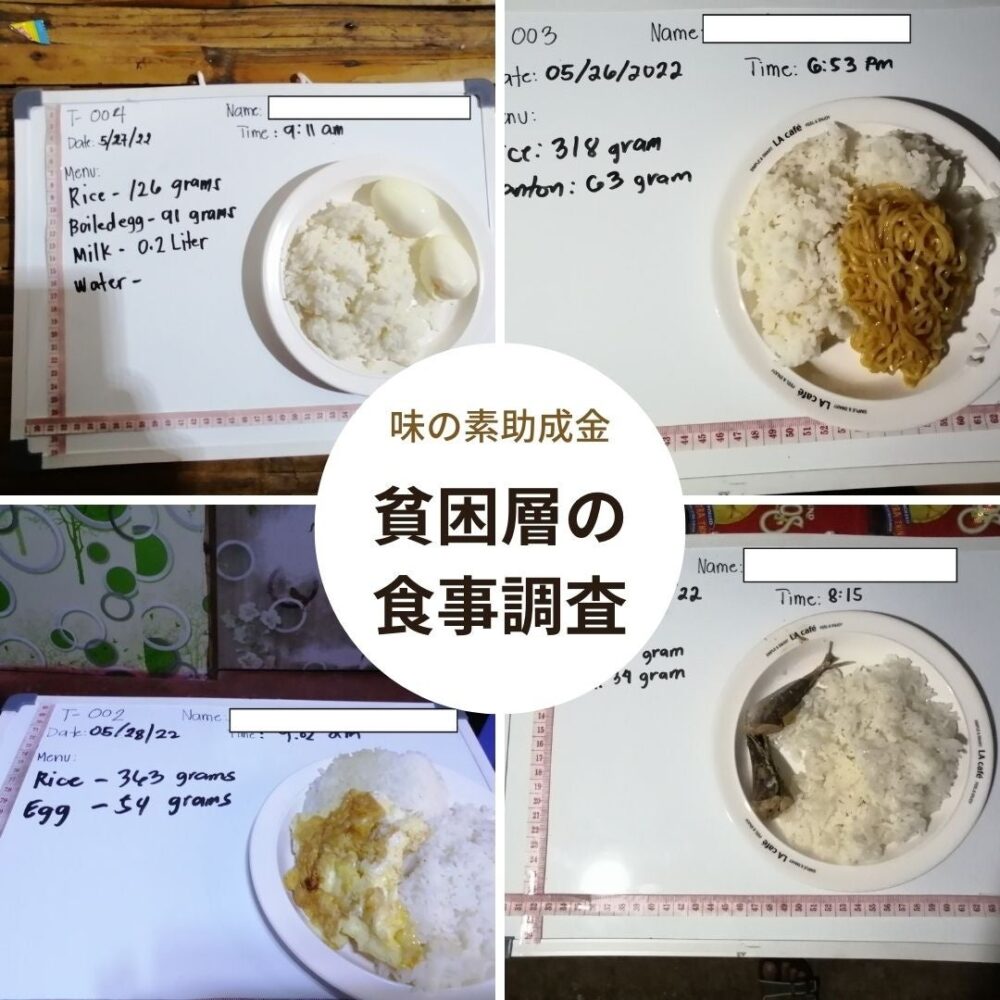 T-004
Name:
Date: 5/27/22
Time: 9:11 am
Menu:
Rice - 126 grams
Boiled egg - 91 grams
Milk - 0.2 Liter
Water -
003
Name
ate: 05/26/2022
Time: 6:53 Pm
nu:
ce: 318 gram
anton: 63 gram
LA café
SIMPLE & ENJOY
LA café
FEEL & ENJOY
味の素助成金
貧困層の
食事調査
T-002
Name:
Date: 05/28/22
Time: 9:02 am
Menu:
Rice - 363 grams
Egg - 54 grams
Name:
22
Time: 8:15
gram
34 gram
LA café
LA café
LA café